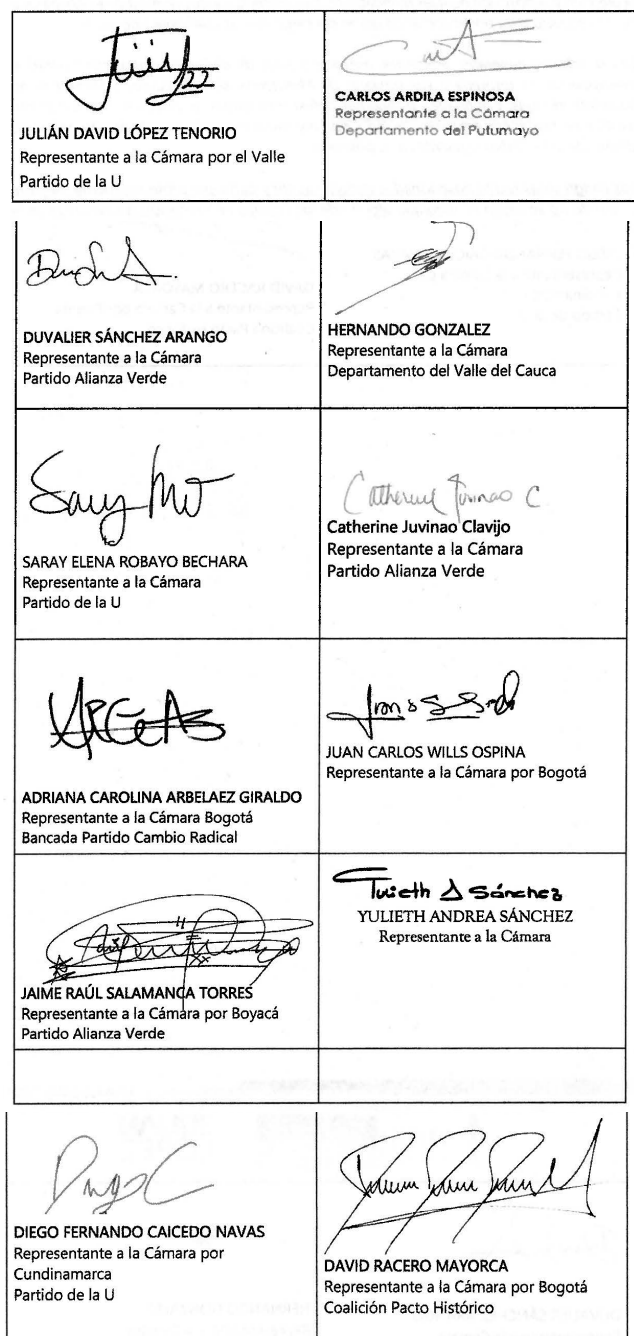 JULIÁN DAVID LÓPEZ TENORIO
Representante a la Cámara por el Valle
Partido de la U
CARLOS ARDILA ESPINOSA
Representante a la Cámara
Departamento del Putumayo
DUVALIER SÁNCHEZ ARANGO
Representante a la Cámara
Partido Alianza Verde
HERNANDO GONZALEZ
Representante a la Cámara
Departamento del Valle del Cauca
SARAY ELENA ROBAYO BECHARA
Representante a la Cámara
Partido de la U
Catherine Juvinao C
Catherine Juvinao Clavijo
Representante a la Cámara
Partido Alianza Verde
ADRIANA CAROLINA ARBELAEZ GIRALDO
Representante a la Cámara Bogotá
Bancada Partido Cambio Radical
JUAN CARLOS WILLS OSPINA
Representante a la Cámara por Bogotá
JAIME RAÚL SALAMANCA TORRES
Representante a la Cámara por Boyacá
Partido Alianza Verde
Yulieth A Sánchez
YULIETH ANDREA SÁNCHEZ
Representante a la Cámara
DIEGO FERNANDO CAICEDO NAVAS
Representante a la Cámara por
Cundinamarca
Partido de la U
DAVID RACERO MAYORCA
Representante a la Cámara por Bogotá
Coalición Pacto Histórico